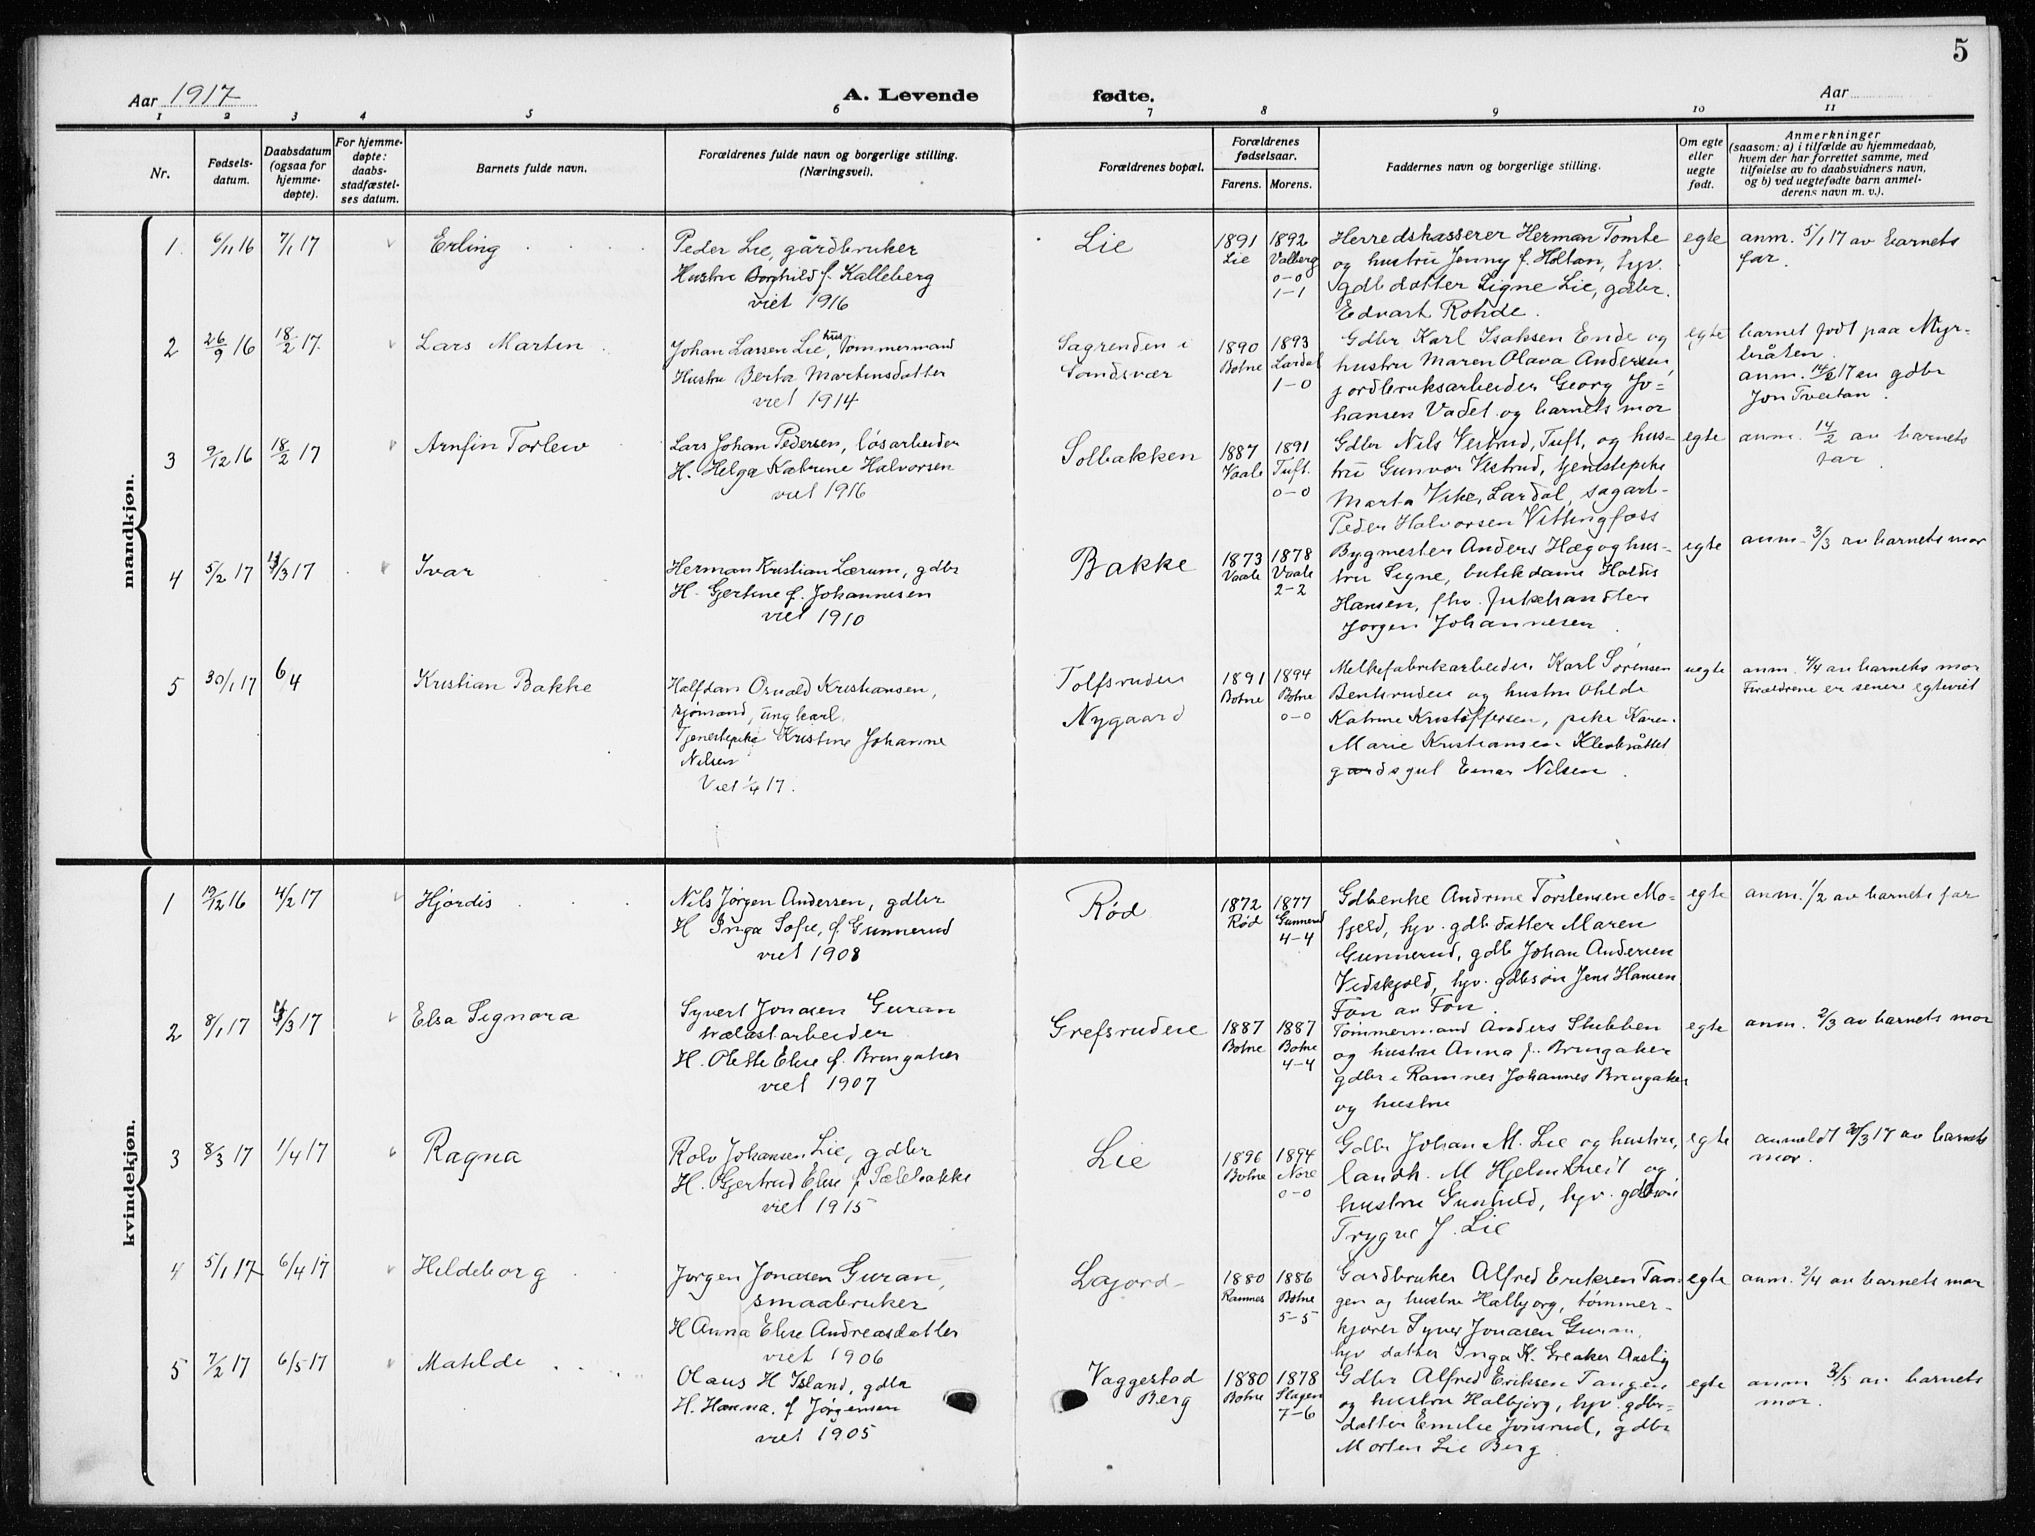 5
Aar 1917
A. Levende
fødte.
Aar
1 2 3 4 5 6 7 8 9 10 11
Nr.
Fødsels-
datum.
Daabsdatum
(ogsaa for
hjemme-
døpte).
For hjemme-
døpte:
daabs-
stadfæstel-
ses datum.
Barnets fulde navn.
Forældrenes fulde navn og borgerlige stilling.
(Næringsvei).
Forældrenes bopæl.
Forældrenes
fødselsaar.
Farens. Morens.
Faddernes navn og borgerlige stilling.
Om egte
eller
uegte
født.
Anmerkninger
(saasom: a) i tilfælde av hjemmedaab,
hvem der har forrettet samme, med
tilføielse av to daabsvidners navn,
og b) ved uegtefødte barn anmel-
derens navn m. v.).
mandkjøn.
1 6/11 16 7/1 17 Erling
Peder Lie, gårdbruker
Hustru Borghild f. Kalleberg
viet 1916
Lie
1891
Lie
1892
Valberg
0-0
1-1
Herredskasserer Herman Tomte
og hustru Jenny f. Holtan, hjv.
gdb datter Signe Lie, gdbr.
Edvart Rohde.
egte
anm. 5/1 17 av barnets
far.
2 26/9 16 18/2 17. Lars Martin
Johan Larsen Lie, hus Tømmermand
Hustru Berta Martinsdatter
viet 1914
Sagrenden i
Sandsvær
1890
Botne
1893
Lardal
1-0
Gdbr Karl Isaksen Ende og
hustru Maren Olava Andersen,
jordbruksarbeider Georg Jo=
hansen Vadet og barnets mor
egte
barnet født paa Myr-
bråten.
anm. 14/2 17 av gdbr
Jon Tveitan.
3 9/12 16 18/2 17 Arnfin Torleiv
Lars Johan Pedersen, løsarbeider
H. Helga Katrine Halvorsen
viet 1916
Solbakken
1887
Vaale
1891
Tuft.
0-0
Gdbr Nils Vestrud, Tuft, og hus=
tru Gunvor Vestrud, tjenestepike
Marta Vike, Lardal, sagarb-
Peder Halvorsen Vittingfoss
egte
anm. 14/2 av barnets
far.
4 5/2 17 /3 17 Ivar
Herman Kristian Lærum, gdbr
H. Gjertine f. Johannesen
viet 1910
Bakke
1873
Vaale
1878
Vaale
2-2
Bygmester Anders Hæg og hus-
tru Signe, butikdame Haldis
Hansen, fhv. handler
Jørgen Johannesen.
egte
anm. 3/3 av barnets mor
5 30/1 17 6/4 Kristian Bakke
Halfdan Osvald Kristiansen,
sjømand, ungkarl.
Tjenestepike Kristine Johanne
Nilsen
Viet 1/4 17.
Tolfsruden
Nygaard
1891
Botne
1894
Botne
0-0
Melkefabrikarbeider Karl Sørensen
Bentsruden og hustru Ohlde
Katrine Kristoffersen, pike Karen
Marie Kristiansen Klevbråttet
gardsgut Einar Nilsen.
uegte
anm. 4/4 av barnets mor
Forældrene er senere egteviet
kvindekjøn.
1 19/12 16 4/2 17 Hjørdis
Nils Jørgen Andersen, gdbr
H Inga Sofie, f. Gunnerud
viet 1908
Rød
1872
Rød
1877
Gunnerud
4-4
Gdbenke Andrine Torstensen Mo-
fjeld, hjv. gdb datter Maren
Gunnerud, gdb Johan Andersen
Vedskjold, hjv. gdbsøn Jens Hansen
Fon av Fon.
egte
anm. 1/2 av barnets far
2 8/1 17 /3 17 Elsa Signora
Syvert Jonasen Guran
trælastarbeider
H. Olette Elise f Bringaker
viet 1907
Grefsrudeie
1887
Botne
1887
Botne
4-4
Tømmermand Anders Stubben
og hustru Anna f. Bringaker
gdbr i Ramnes Johannes Bringaker
og hustru
egte
anm. 2/3 av barnets mor
3 8/3 17 1/4 17 Ragna
Rolv Johansen Lie, gdbr
H. Gjertrud Elise f Sælebakke
viet 1915
Lie
1896
Botne
1894
Nore
0-0
Gdbr Johan M. Lie og hustru,
landh. M Hjelmtveit og
hustru Gunhild, hjv. gdbsøn
Trygve J. Lie
egte
anmeldt 30/3 17 av barnets
mor.
4 5/1 17 6/4 17 Hildeborg
Jørgen Jonasen Guran,
smaabruker
H Anna Elise Andreasdatter
viet 1906
Lajord
1880
Ramnes
1886
Botne
5-5
Gardbruker Alfred Eriksen Tan-
gen og hustru Halbjørg, tømmer-
kjører Syver Jonasen Guran,
hjv datter Inga K. Greaker Aasly
egte
anm. 2/4 av barnets mor
5 7/2 17 6/5 17 Matilde
Olaus H Island, gdbr
H. Hanna. f Jørgensen
viet 1905
Vaggestad
Berg
1880
Botne
1878
Slagen
7-6
Gdbr Alfred Eriksen Tangen
og hustru Halbjørg, hjv. gdbr-
datter Emilie Jonsrud, gdbr
Morten Lie Berg.
egte
anm 3/5 av barnets
mor.